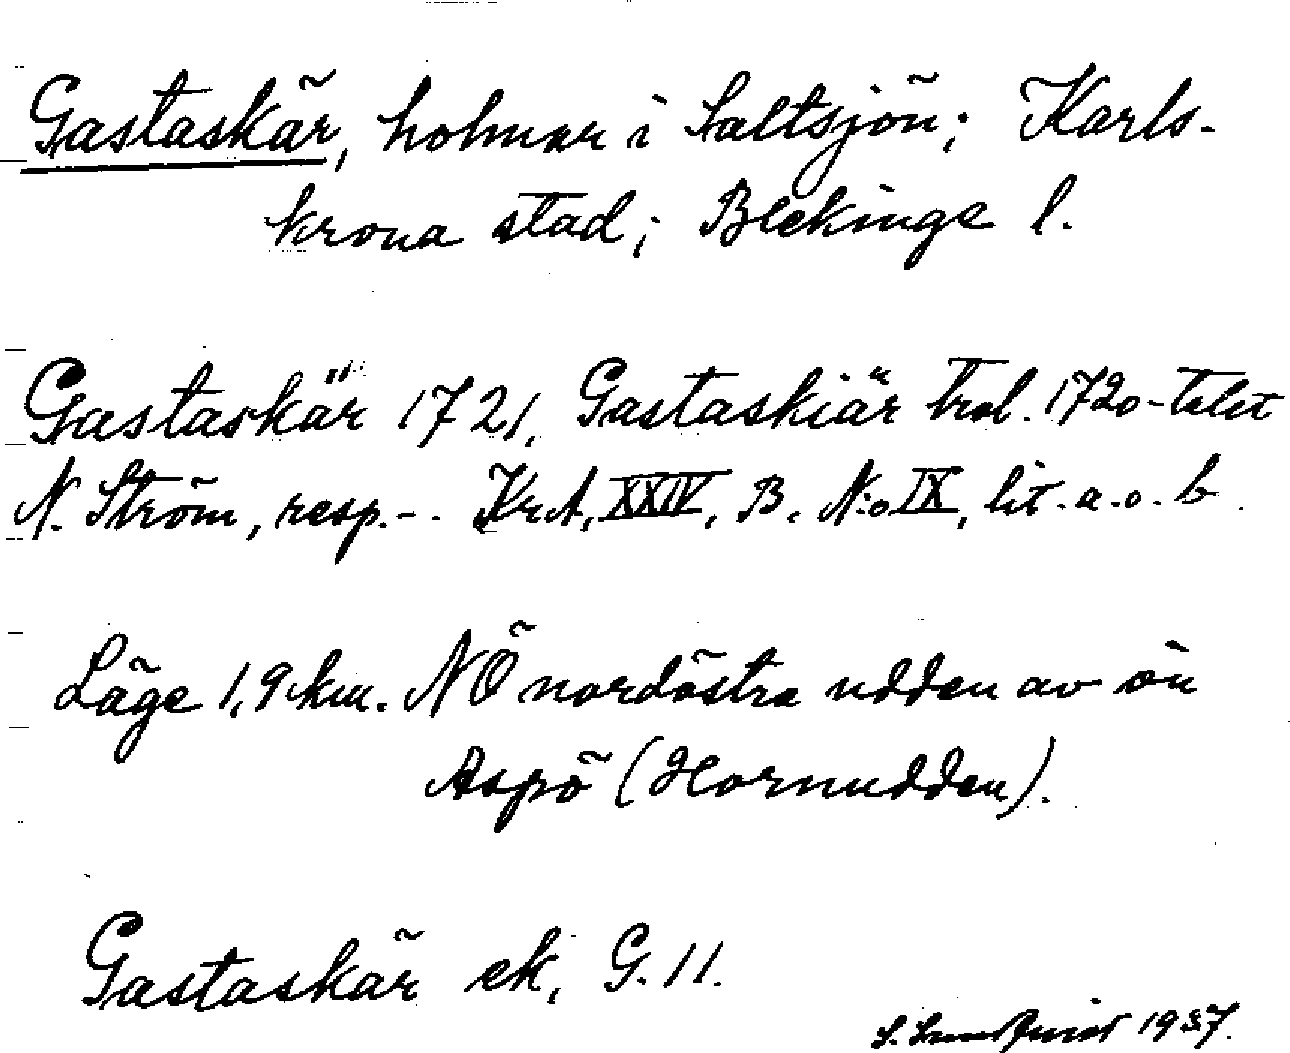 Gastaskär, holmar i Saltsjön; Karls-
krona stad; Blekinge l.
Gastaskär 1721, Gastaskiär trol. 1720-talet
N. Ström, resp. - . KrA, XXIV, B. N:o IX, lit. a. o. b.
Läge 1,9 km. NÖ nordöstra udden av ön
Aspö (Hornudden).
Gastaskär ek, G. 11.
S. Sundquist 1937.